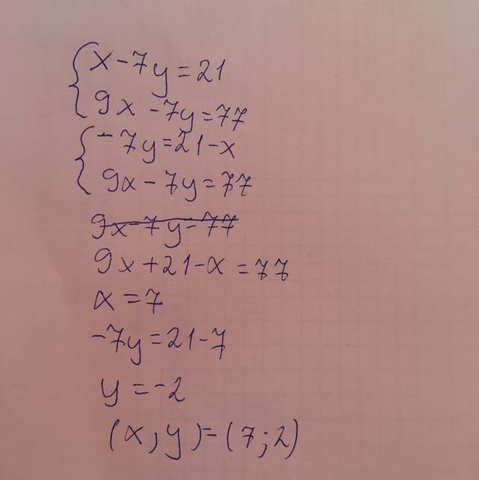 x-7y=21
9x-7y=77
-7y=21-x
9x-7y=77
9x-7y-77
9x+21-x=77
x=7
-7y=21-7
y=-2
(x;y)=(7;2)